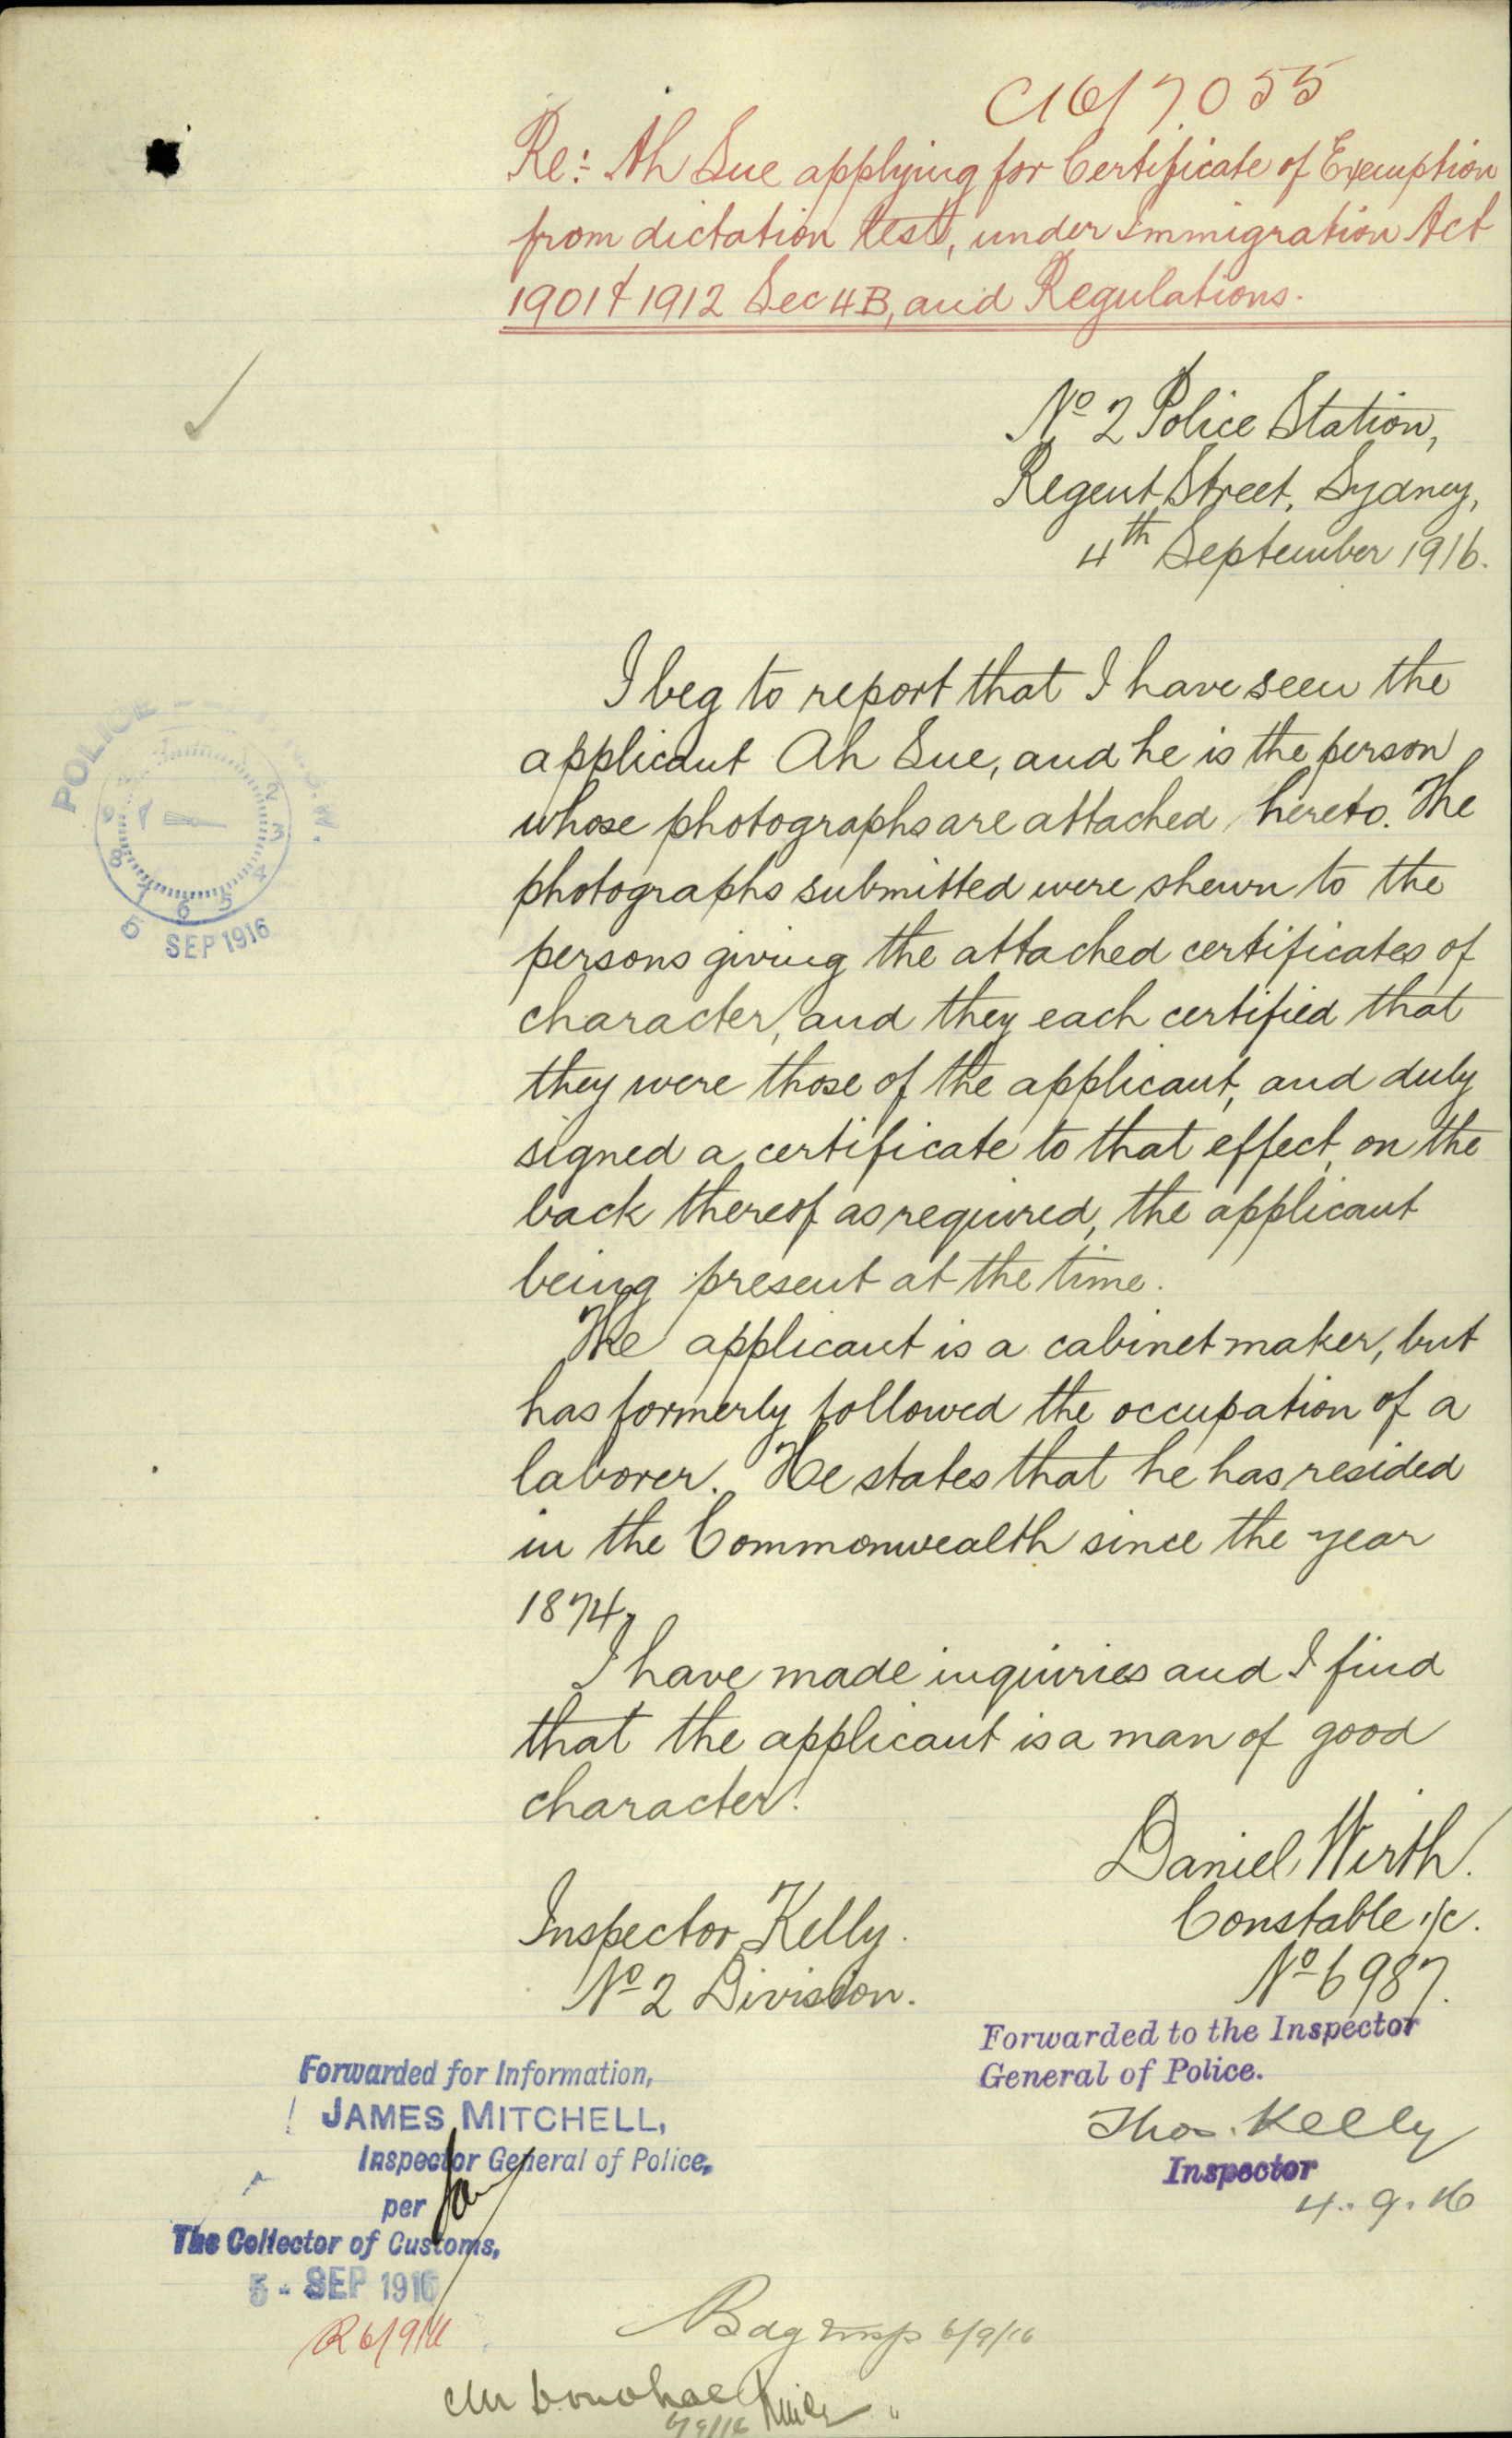 C16/7055
Re:- Ah Sue applying for Certificate of Exemption
from dictation test, under Immigration Act
1901 & 1912 Sec 4B, and Regulations.
No 2 Police Station,
Regent Street, Sydney,
4th September 1916.
I beg to report that I have seen the
applicant Ah Sue, and he is the person
whose photographs are attached hereto. The
photographs submitted were shewn to the
persons giving the attached certificates of
character, and they each certified that
they were those of the applicant, and duly
signed a certificate to that effect, on the
back thereof as required, the applicant
being present at the time.
The applicant is a cabinet maker, but
has formerly followed the occupation of a
laborer. He states that he has resided
in the Commonwealth since the year
1874.
I have made inquiries and I find
that the applicant is a man of good
character.
Daniel Wirth.
Constable 1/c.
No 6987.
Inspector Kelly.
No 2 Division.
Forwarded to the Inspector
General of Police.
Thos. Kelly
Inspector
4.9.16
POLICE
2
3
4
5
6
7
8
5 SEP 1916
Forwarded for Information,
JAMES MITCHELL,
Inspector General of Police,
per
The Collector of Customs,
5 - SEP 1916
R 6/9/16
6/9/16
Mr Donohoe
6/9/16